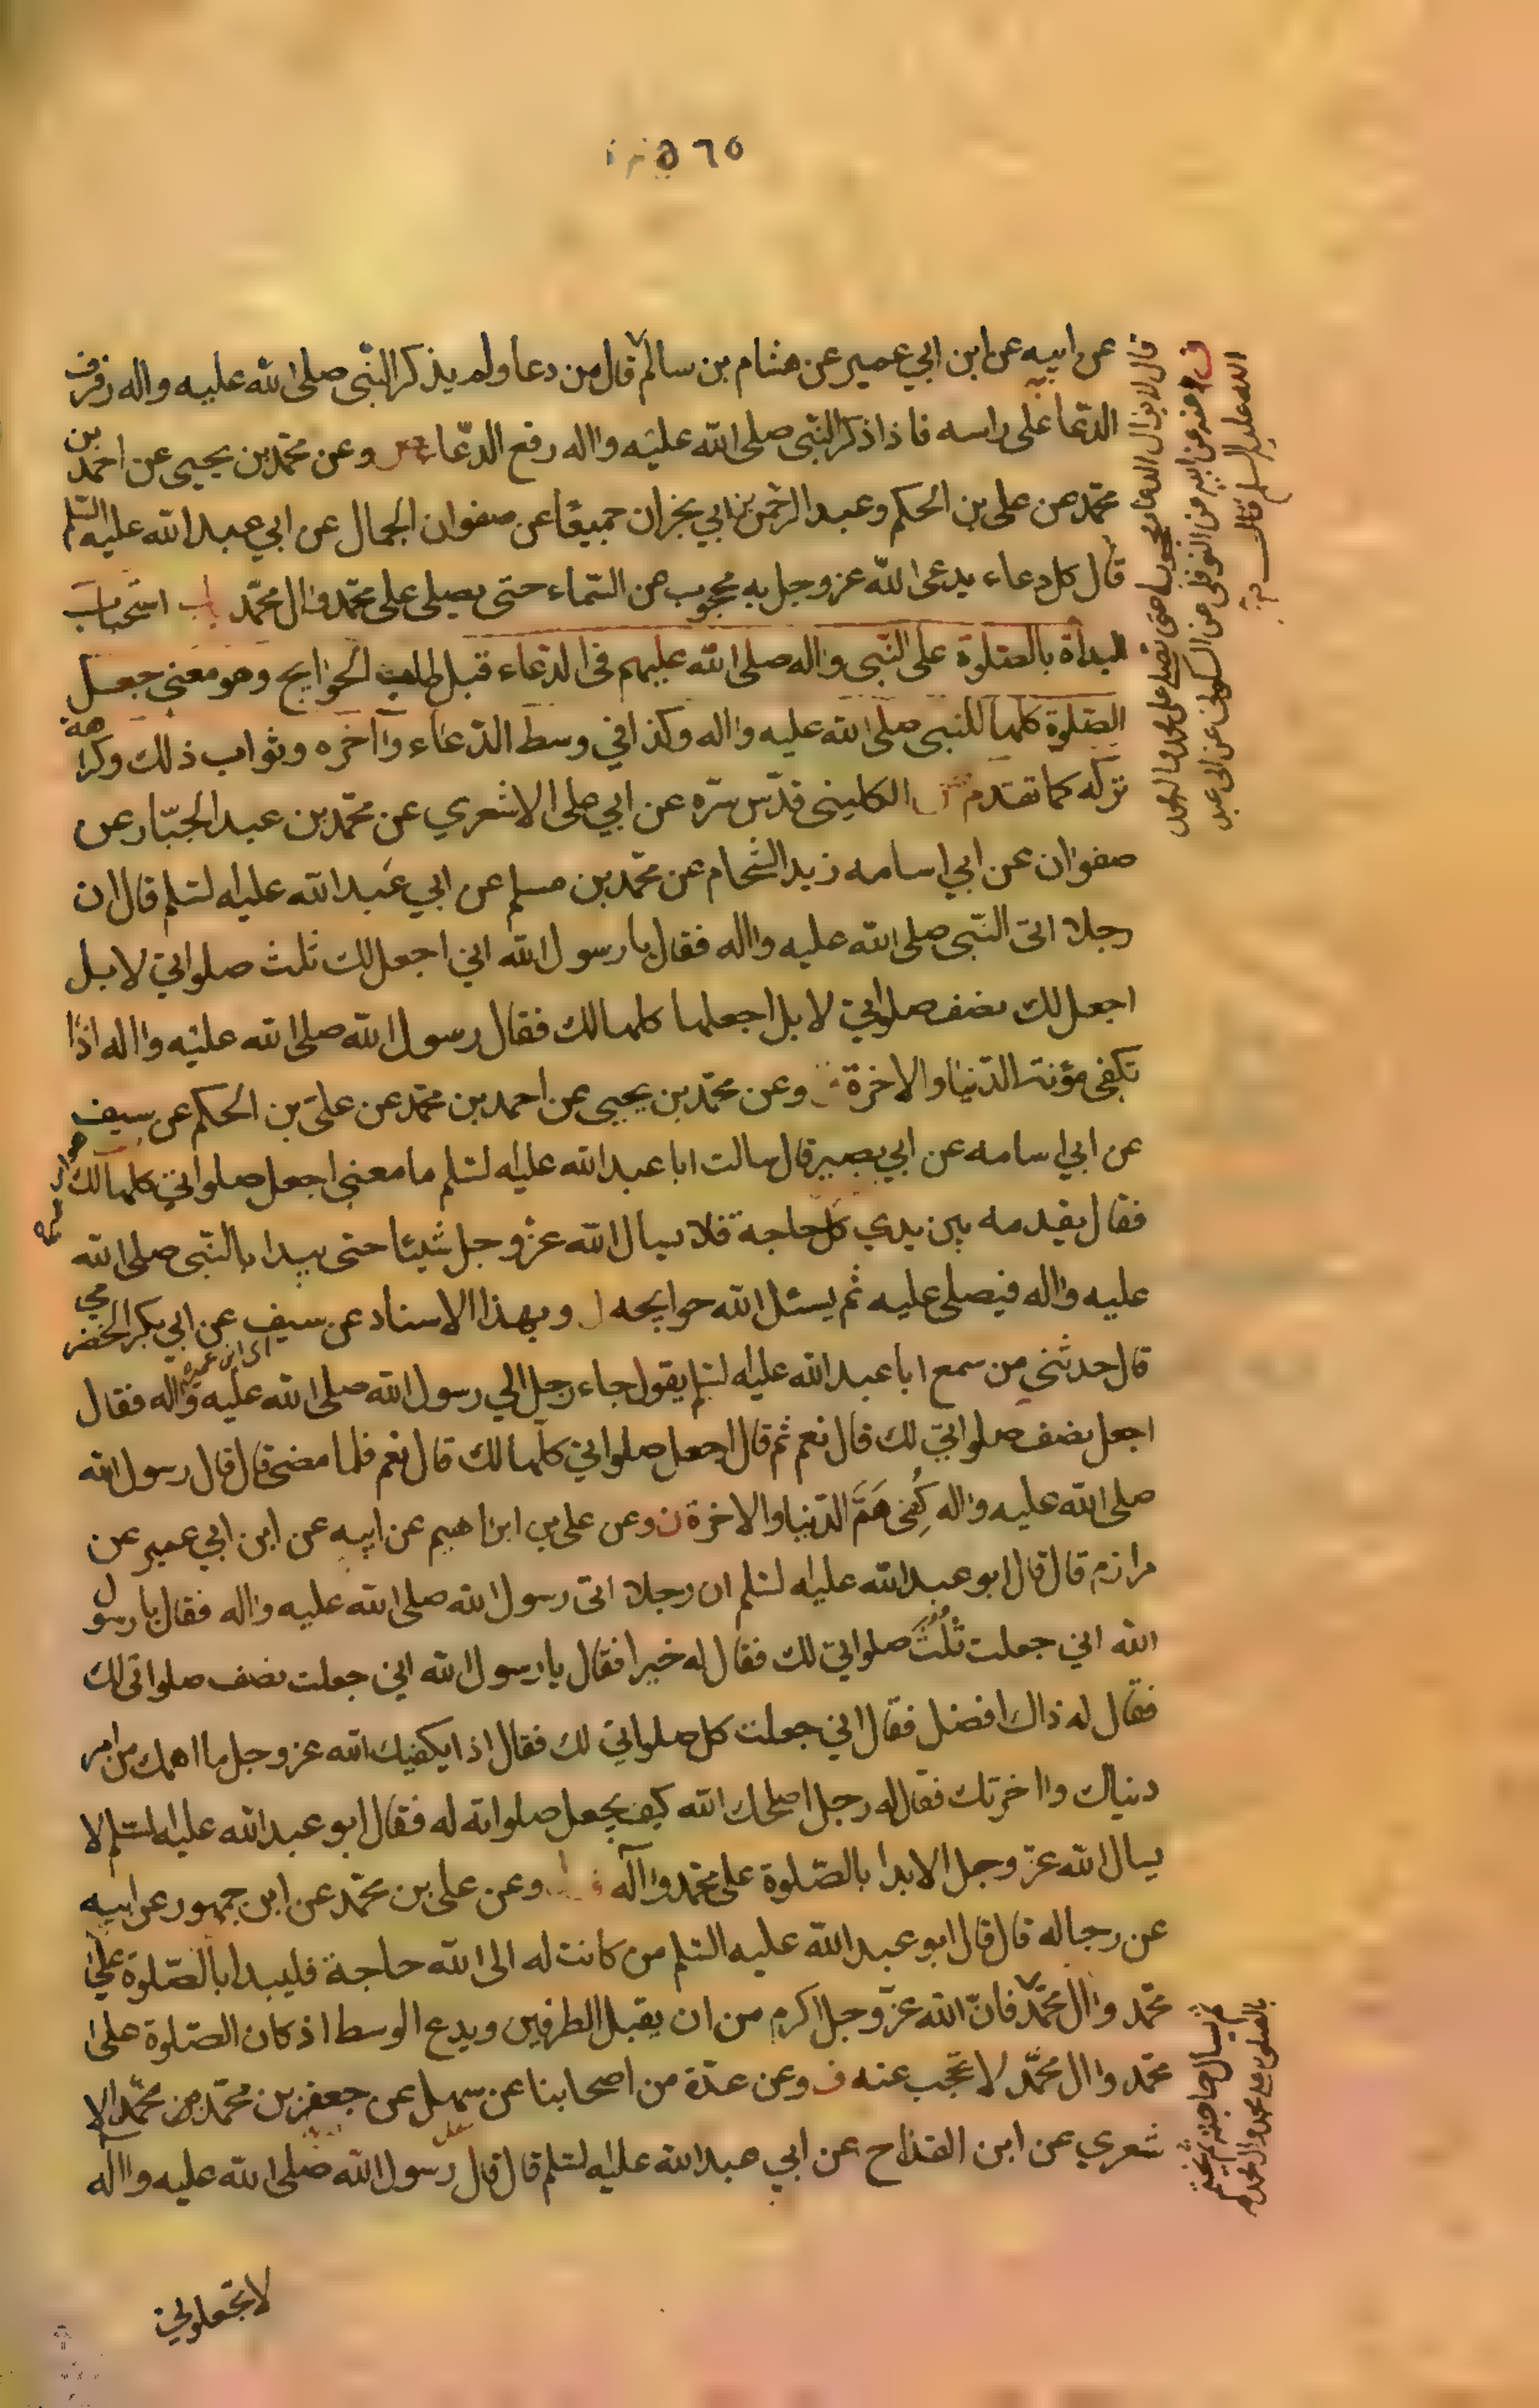 ٥٦٥
عن ابيه عن ابن ابي عمير عن هشام بن سالم قال من دعا ولم يذكر النّبى صلى الله عليه واله رفرف
الدّعا على راسه فاذا ذكر النّبى صلى الله عليه واله رفع الدّعا وعن محمّد بن يحيى عن احمد بن
محمّد عن على بن الحكم وعبد الرحمن بن ابي نجران جميعًا عن صفوان الجمال عن ابي عبد الله عليه السّلم
قال كل دعاء يدعى الله عز وجل به محجوب عن السّماء حتى يصلى على محمّد وال محمّد باب استحباب
البداة بالصّلوة على النّبى واله صلى الله عليهم فى الدّعاء قبل طلب الحوايج وهو معنى جعل
الصّلوة كلها للنبى صلى الله عليه واله وكذا في وسط الدّعاء واخره وثواب ذلك وكراهة
تركه كما تقدم الكلينى قدّس سّره عن ابي على الاشعري عن محمّد بن عبد الجبّار عن
صفوان عن ابي اسامه زيد الشّحام عن محمّد بن مسلم عن ابي عبد الله عليه لسّلم قال ان
رجلا اتى النّبى صلى الله عليه واله فقال يا رسول الله اني اجعل لك ثلث صلواتي لا بل
اجعل لك نصف صلواتي لا بل اجعلها كلها لك فقال رسول الله صلى الله عليه واله اذًا
تكفى مؤنة الدّنيا والاخرة وعن محمّد بن يحيى عن احمد بن محمّد عن علىّ بن الحكم عن سيف
عن ابي اسامه عن ابي بصير قال سالت ابا عبد الله عليه لسّلم ما معنى اجعل صلواتي كلها لك
فقال يقدمه بين يدي كل حاجة فلا يسال الله عزّ وجل شيئا حتى يبدا بالنّبى صلى الله
عليه واله فيصلى عليه ثم يسئل الله حوايجه وبهذا الاسناد عن سيف عن ابي بكر الحضرمي
اى ابن عميرة
قال حدثني من سمع ابا عبد الله عليه لسّلم يقول جاء رجل الي رسول الله صلى الله عليه واله فقال
اجعل نصف صلواتي لك قال نعم ثم قال اجعل صلواتي كلها لك قال نعم فلما مضى قال قال رسول الله
صلى الله عليه واله كُفى هَمَّ الدّنيا والاخرة وعن على بن ابراهيم عن ابيه عن ابن ابي عمير عن
مرازم قال قال ابو عبد الله عليه لسّلم ان رجلا اتى رسول الله صلى الله عليه واله فقال يا رسول
الله اني جعلت ثُلُثَ صلواتي لك فقال له خيرا فقال يا رسول الله اني جعلت نصف صلواتى لك
فقال له ذاك افضل فقال اني جعلت كل صلواتي لك فقال اذا يكفيك الله عز وجل ما اهمك من امر
دنياك واخرتك فقال له رجل اصلحك الله كيف يجعل صلواته له فقال ابو عبد الله عليه لسّلم لا
يسال الله عزّ وجل الا بدا بالصّلوة على محمّد واله وعن على بن محمّد عن ابن جمهور عن ابيه
عن رجاله قال قال ابو عبد الله عليه السّلم من كانت له الى الله حاجة فليبدا بالصّلوة على
محمّد وال محمّد فانّ الله عزّ وجل اكرم من ان يقبل الطرفين ويدع الوسط اذ كان الصّلوة على
محمّد وال محمّد لا تحجب عنه وعن عدّة من اصحابنا عن سهل عن جعفر بن محمّد عن محمّد الا
شعري عن ابن القدّاح عن ابي عبد الله عليه لسّلم قال قال رسول الله صلى الله عليه واله
لا تجعلوني
عنه عن ابيه عن النوفلى عن السكونى عن ابى عبد
الله عليه السلم قال
قال لا يزال الدعاء محجوبا حتى يصلى على محمد وال محمد
ثم يسال حاجته ثم يختم
بالصلوة على محمد وال محمد